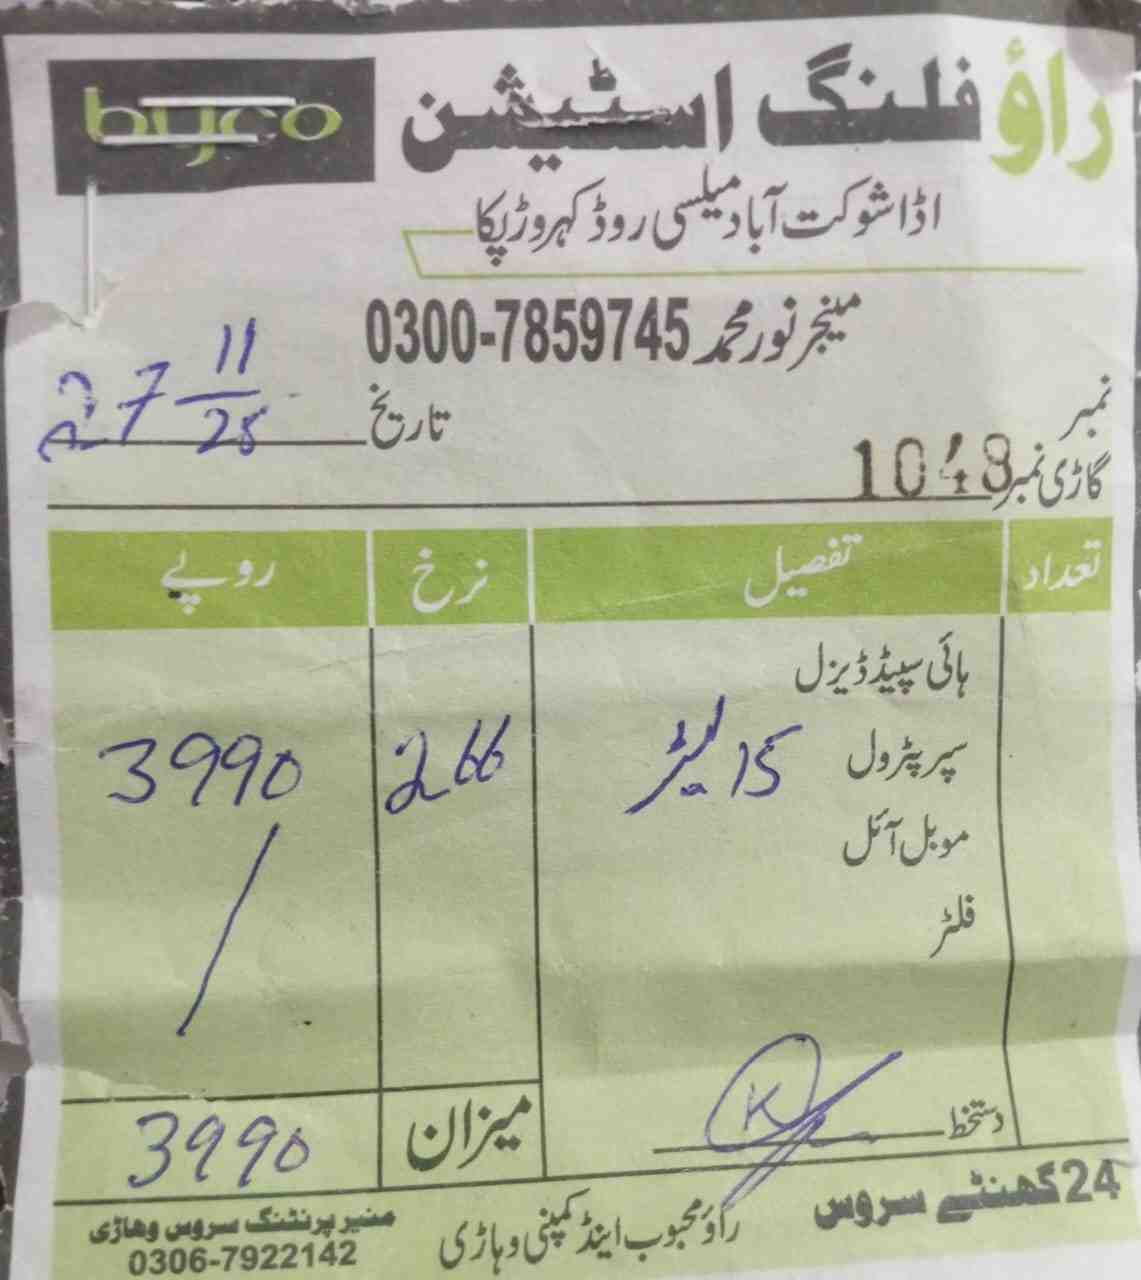 byco راؤ فلنگ اسٹیشن
اڈا شوکت آباد میلسی روڈ کہروڑ پکا
مینجر نور محمد 0300-7859745
نمبر 1048
تاریخ 27 11/25
گاڑی نمبر
تعداد تفصیل نرخ روپے
ہائی سپیڈ ڈیزل
سپر پٹرول 15 لیٹر 266 3990
موبل آئل
فلٹر
میزان 3990
دستخط
24 گھنٹے سروس
راؤ محبوب اینڈ کمپنی وہاڑی
منیر پرنٹنگ سروس وھاڑی
0306-7922142